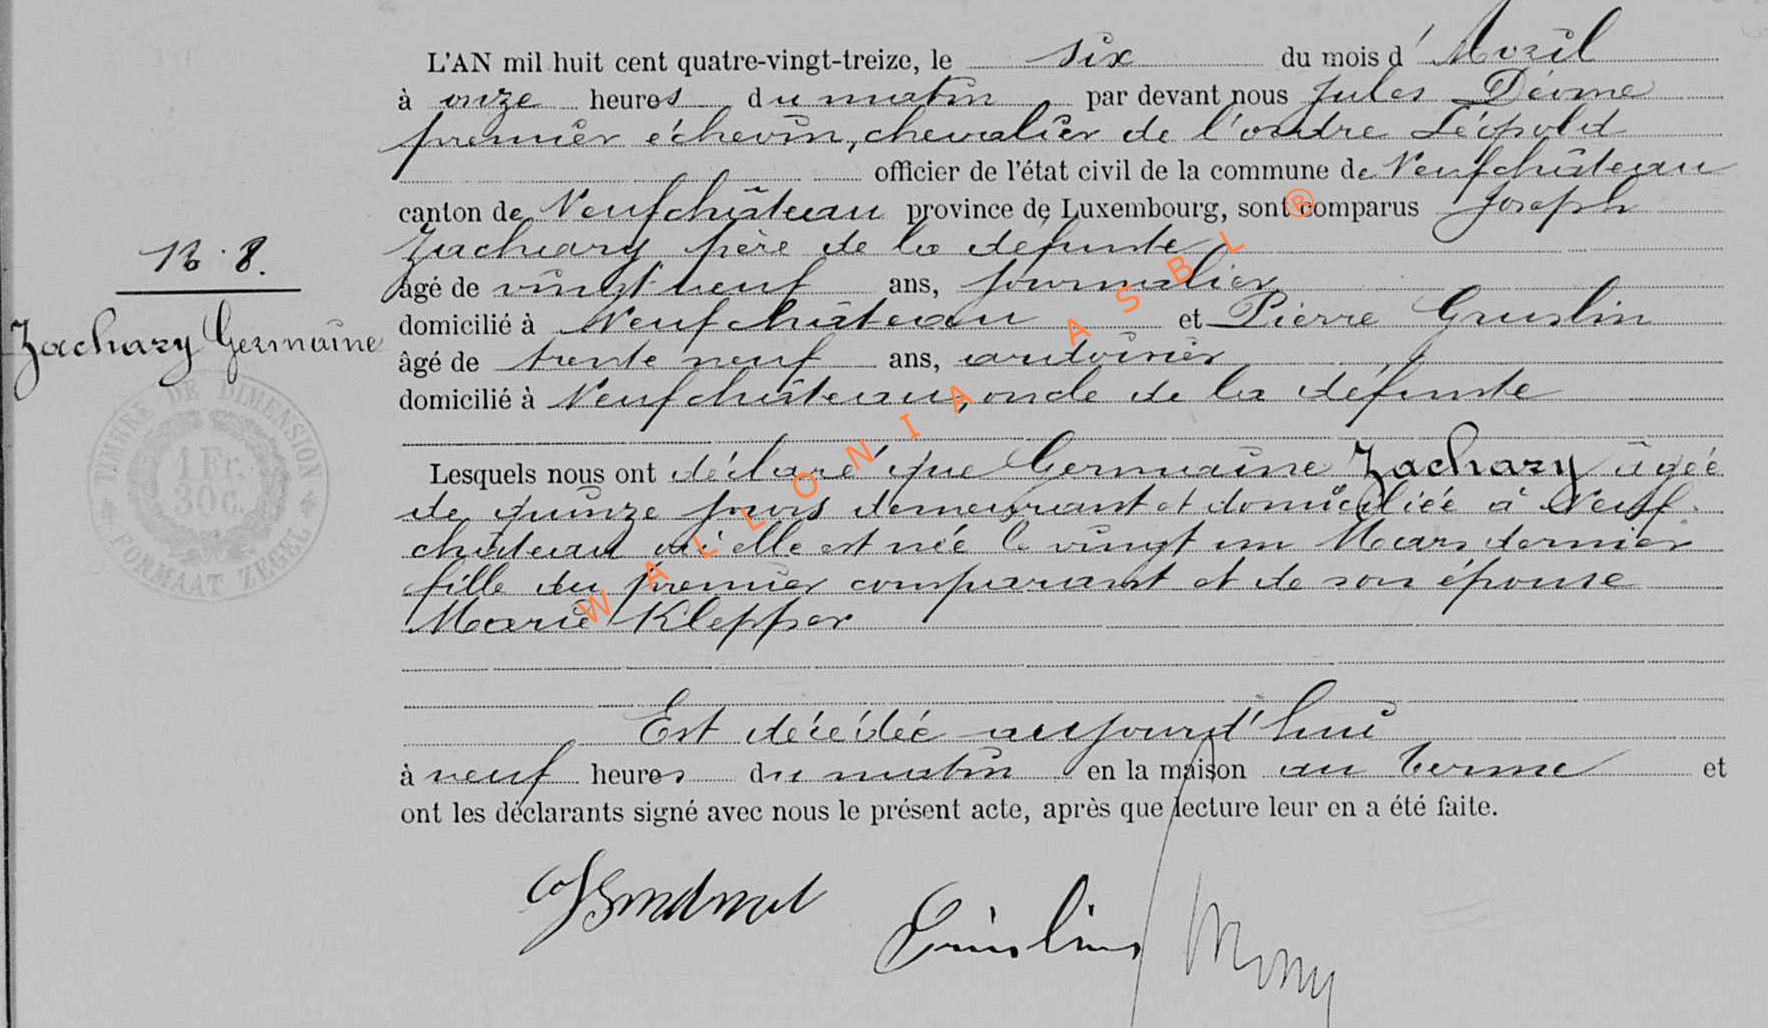 L'AN mil huit cent quatre-vingt-treize, le six du mois d'Avril
à onze heures du matin par devant nous Jules
premier échevin, chevalier de l'ordre Léopold
officier de l'état civil de la commune de Neufchâteau
canton de Neufchâteau province de Luxembourg, sont comparus Joseph
Zachary père de la défunte
âgé de vingt neuf ans, journalier
domicilié à Neufchâteau et Pierre Guislin
âgé de trente neuf ans,
domicilié à Neufchâteau, oncle de la défunte
13.8.
Zachary Germaine
TIMBRE DE DIMENSION
1 Fr.
30 c.
FORMAAT ZEGEL
Lesquels nous ont déclaré que Germaine Zachary âgée
de quinze jours demeurant et domiciliée à Neuf
château où elle est née le vingt un Mars dernier
fille du premier comparant et de son épouse
Marie Klepper
Est décédée aujourd'hui
à neuf heures du matin en la maison au Terme et
ont les déclarants signé avec nous le présent acte, après que lecture leur en a été faite.
Guislin
WALLONIA ASBL ®